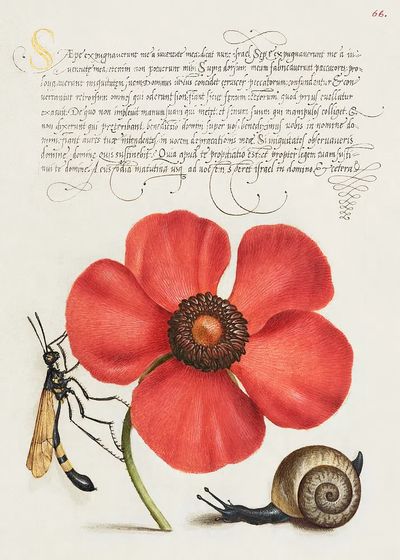 66.
Sæpe expugnaverunt me à iuventute mea, dicat nunc israel. Sæpe expugnaverunt me à iu-
ventute mea, etenim non potuerunt mihi. Supra dorsum meum fabricaverunt peccatores, pro-
longaverunt iniquitatem suam. Dominus iustus concidet cervices peccatorum, confundantur & con
vertantur retrorsum omnes qui oderunt sion, fiant sicut fenum tectorum, quod prius evellatur
exaruit. De quo non implevit manum suam qui metit, et sinum suum qui manipulos colliget. Et
non dixerunt qui preteribant, benedictio domini super vos, benediximus vobis in nomine do-
mini, fiant aures tuæ intendentes, in vocem deprecationis meæ. Si iniquitates observaveris
domine, domine quis sustinebit. Quia apud te propitiatio est: et propter legem tuam susti-
nui te domine. A custodia matutina usq ad noctem speret israel in domino. Et cetera.